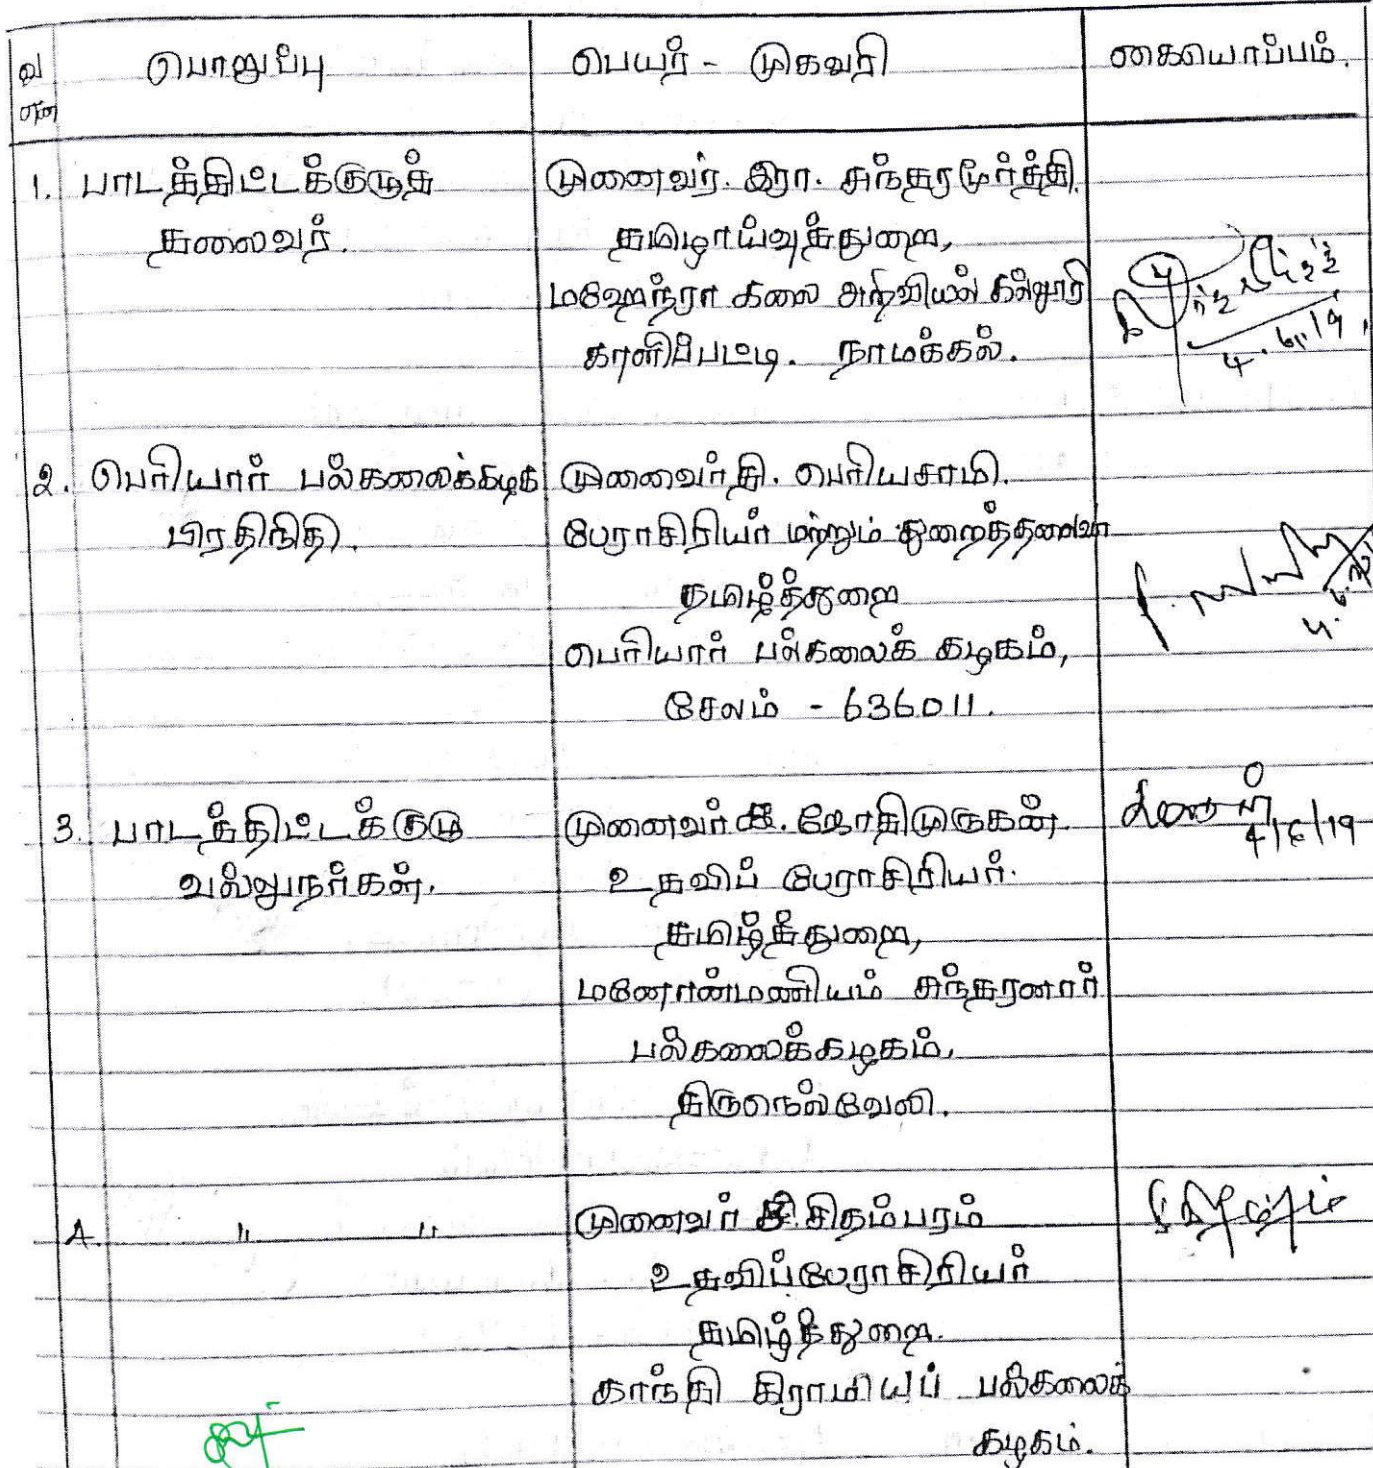 வ எண் பொறுப்பு பெயர் - முகவரி கையொப்பம்.
1. பாடத்திட்டக்குழுத் முனைவர். இரா. சுந்தரமூர்த்தி.
தலைவர். தமிழாய்வுத்துறை,
மஹேந்ரா கலை அறிவியல் கல்லூரி
காளிப்பட்டி. நாமக்கல்.
4.6.19.
2. பெரியார் பல்கலைக்கழக முனைவர் தி. பெரியசாமி.
பிரதிநிதி. பேராசிரியர் மற்றும் துறைத்தலைவர்
தமிழ்த்துறை
பெரியார் பல்கலைக் கழகம்,
சேலம் - 636011.
3. பாடத்திட்டக்குழு முனைவர் ஜோதிமுருகன்,
4/6/19
வல்லுநர்கள். உதவிப் பேராசிரியர்.
தமிழ்த்துறை,
மனோன்மணியம் சுந்தரனார்
பல்கலைக்கழகம்,
திருநெல்வேலி.
4. " " முனைவர் சிதம்பரம்
உதவிப்பேராசிரியர்
தமிழ்த்துறை.
காந்தி கிராமியப் பல்கலைக்
கழகம்.